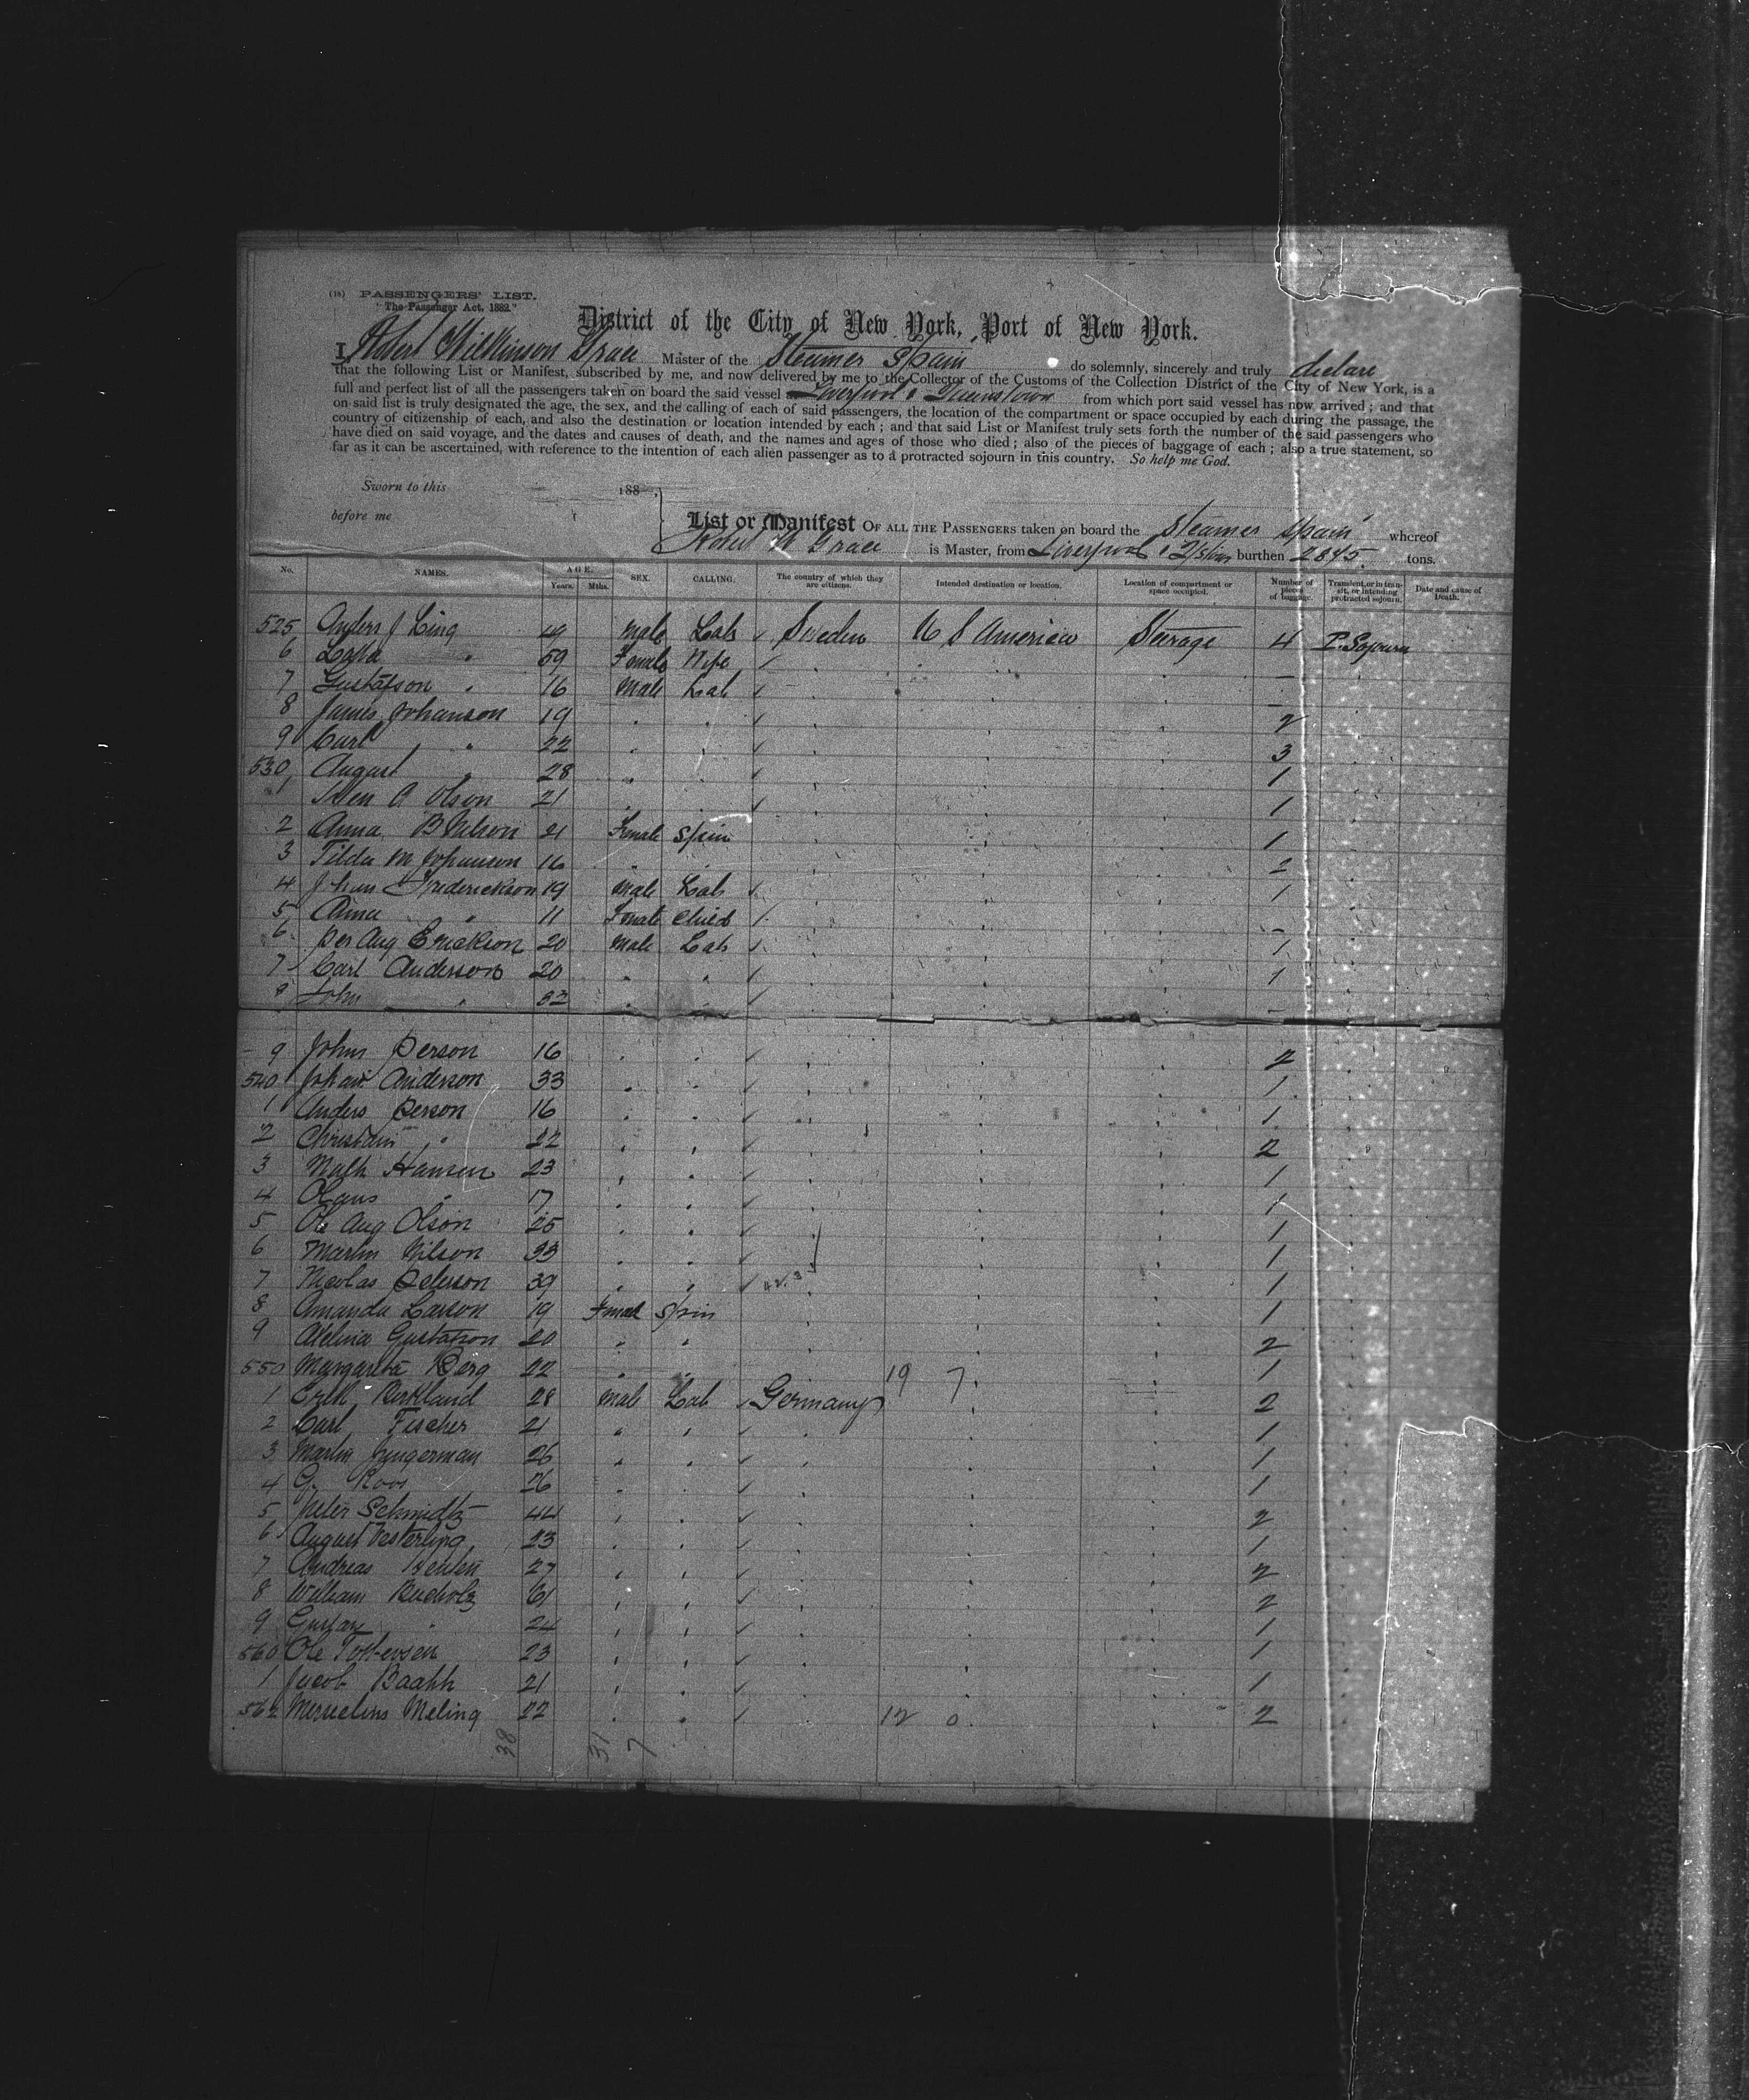 (18) PASSENGERS' LIST.
"The Passenger Act, 1882."
District of the City of New York, Port of New York.
I, Robert Wilkinson Grace Master of the Steamer Spain do solemnly, sincerely and truly declare
that the following List or Manifest, subscribed by me, and now delivered by me to the Collector of the Customs of the Collection District of the City of New York, is a
full and perfect list of all the passengers taken on board the said vessel Liverpool & Queenstown from which port said vessel has now arrived; and that
on said list is truly designated the age, the sex, and the calling of each of said passengers, the location of the compartment or space occupied by each during the passage, the
country of citizenship of each, and also the destination or location intended by each; and that said List or Manifest truly sets forth the number of the said passengers who
have died on said voyage, and the dates and causes of death, and the names and ages of those who died; also of the pieces of baggage of each; also a true statement, so
far as it can be ascertained, with reference to the intention of each alien passenger as to a protracted sojourn in this country. So help me God.
Sworn to this 188
before me
List or Manifest OF ALL THE PASSENGERS taken on board the Steamer Spain whereof
Robert W Grace is Master, from Liverpool & Q/stown burthen 2845 tons.
No. NAMES. AGE. Years. Mths. SEX. CALLING. The country of which they are citizens. Intended destination or location. Location of compartment or space occupied. Number of pieces of baggage. Transient, or in transit, or intending protracted sojourn. Date and cause of Death.
525 Anders J Ling 49 Male Lab Sweden U S America Steerage 4 P. Sojourn
6 " 59 Female Wife
7 Gustafson " 16 Male Lab
8 James Johanson 19 " " 2
9 Carl " 22 " " 3
530 August " 28 " " 1
1 Sven A Olson 21 " " 1
2 Anna B Nilson 21 Female Spin 1
3 Tilda M Johanson 16 " " 2
4 Johan Frederickson 19 Male Lab 1
5 Anna " 11 Female Child -
6 Per Aug Erickson 20 Male Lab 1
7 Carl Anderson 20 " " 1
8 John " " " -
9 John Person 16 " " 2
540 Johan Anderson 33 " " 1
1 Anders Person 16 " " 1
2 Christian " 22 " " 2
3 Hansen 23 " " 1
4 Olaus " 17 " " 1
5 Ole Aug Olson 25 " " 1
6 Martin Nilson 33 " " 1
7 Nicolas Peterson 39 " " 1
8 Amanda Larson 19 Female Spin 1
9 Gustafson 20 " " 2
550 Margareta Berg 22 " " 19 7 1
1 Kirkland 28 Male Lab Germany 2
2 Carl Fischer 21 " " 1
3 Martin Jungerman 26 " " 1
4 G. Roos 26 " " 1
5 Peter Schmidtz 44 " " 2
6 August Vesterling 23 " " 1
7 Andreas 27 " " 2
8 William Bucholz 61 " " 2
9 Gustav " 24 " " 1
560 Ole Tostensen 23 " " 1
1 Jacob Baahh 21 " " 1
562 Meling 22 " " 12 0 2
38 31 7